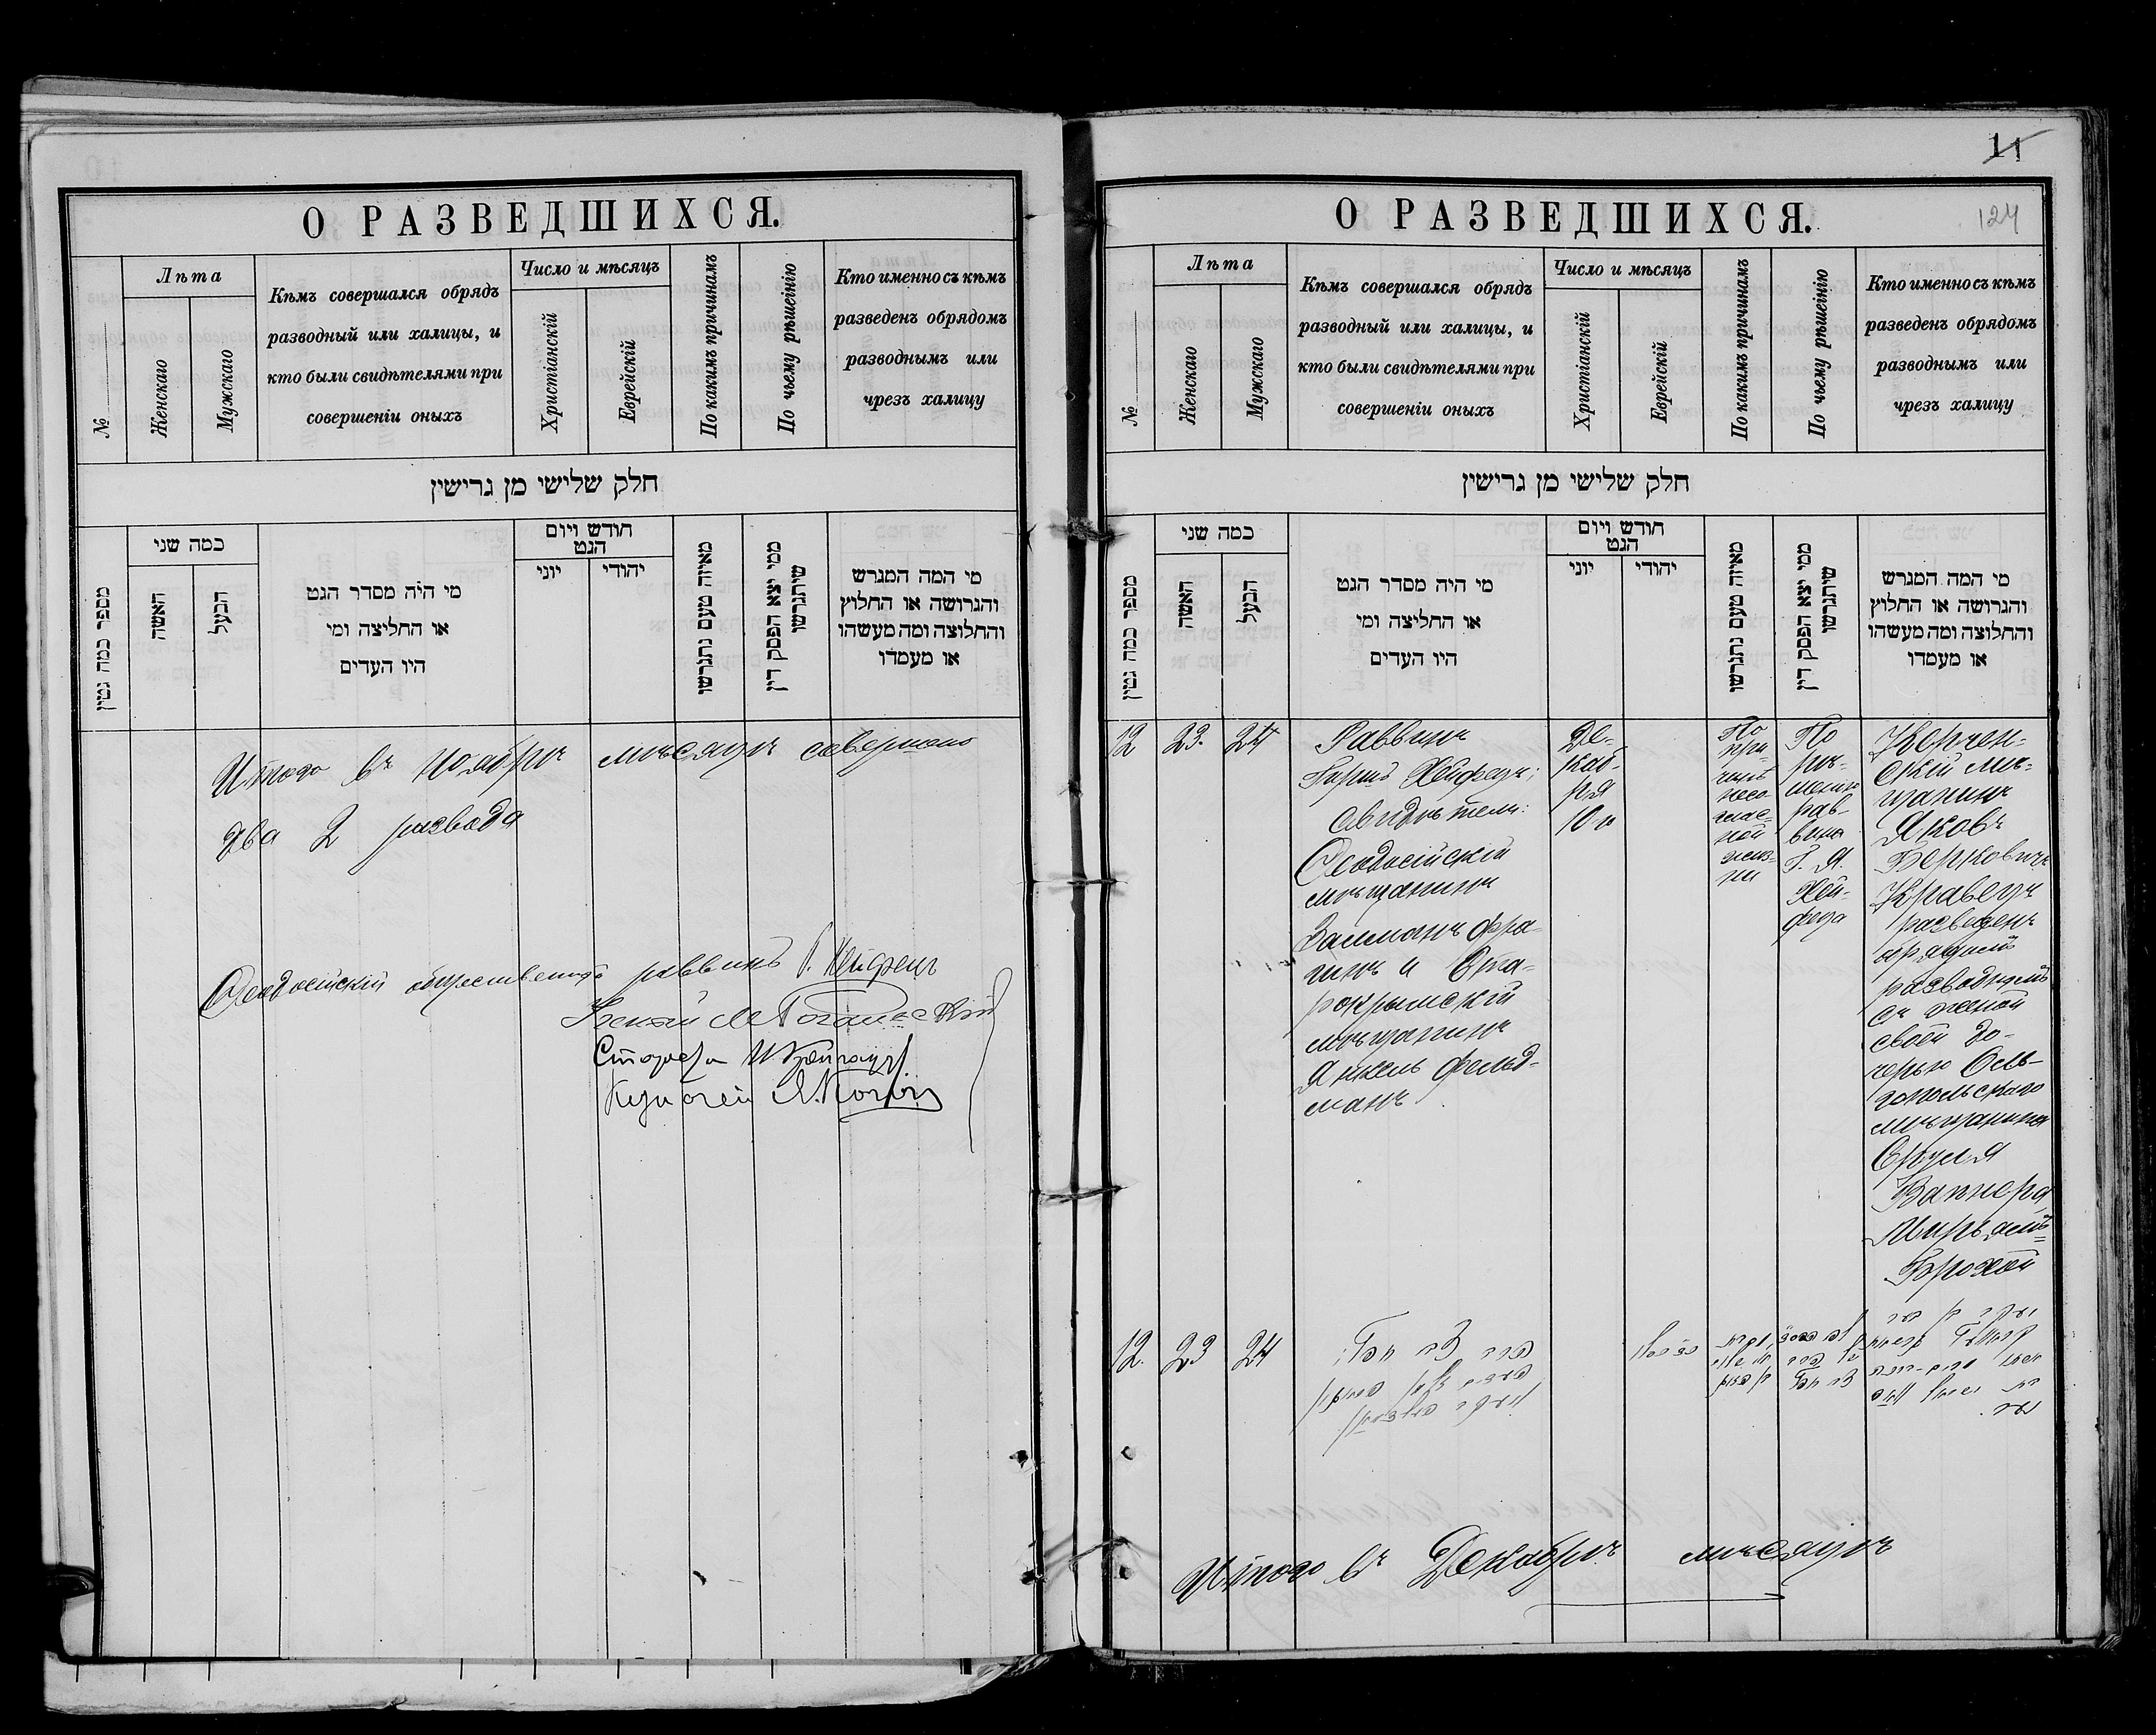 О РАЗВЕДШИХСЯ.
№
Лѣта
Женскаго
Мужскаго
Кѣмъ совершался обрядъ
разводный или халицы, и
кто были свидѣтелями при
совершеніи оныхъ
Число и мѣсяцъ
Христіанскій
Еврейскій
По какимъ причинамъ
По чьему рѣшенію
Кто именно съ кѣмъ
разведенъ обрядомъ
разводнымъ или
чрезъ халицу
חלק שלישי מן גרישין
מספר כמה גטין
כמה שני
האשה
הבעל
מי היה מסדר הגט
או החליצה ומי
היו העדים
חודש ויום
הגט
יוני
יהודי
מאיזה טעם נתגרשו
ממי יצא הפסק דין
שיתגרשו
מי המה המגרש
והגרושה או החלוץ
והחלוצה ומה מעשהו
או מעמדו
Итого въ Ноябрѣ мѣсяцѣ совершено
два 2 развода
Ѳеодосійскій общественный раввинъ Г. Хейфецъ
Староста
Казначей
11
О РАЗВЕДШИХСЯ.
124
№
Лѣта
Женскаго
Мужскаго
Кѣмъ совершался обрядъ
разводный или халицы, и
кто были свидѣтелями при
совершеніи оныхъ
Число и мѣсяцъ
Христіанскій
Еврейскій
По какимъ причинамъ
По чьему рѣшенію
Кто именно съ кѣмъ
разведенъ обрядомъ
разводнымъ или
чрезъ халицу
חלק שלישי מן גרישין
מספר כמה גטין
כמה שני
האשה
הבעל
מי היה מסדר הגט
או החליצה ומי
היו העדים
חודש ויום
הגט
יוני
יהודי
מאיזה טעם נתגרשו
ממי יצא הפסק דין
שיתגרשו
מי המה המגרש
והגרושה או החלוץ
והחלוצה ומה מעשהו
או מעמדו
12
23.
24
Раввинъ
Гиршъ Хейфецъ;
свидѣтели:
Ѳеодосійскій
мѣщанинъ
Залманъ Фра-
гинъ и Ста-
рокрымскій
мѣщанинъ
Янкель Фельд-
манъ
Де-
каб-
ря
10-го
По
при-
чинѣ
несо-
глас-
ной
жиз-
ни
По
рѣ-
шенію
рав-
вина
Г. Я.
Хей-
феца
Керчен-
скій мѣ-
щанинъ
Яковъ
Берковичъ
Кравецъ
разведенъ
обрядомъ
разводнымъ
съ женой
своей до-
черью Оль-
гопольскаго
мѣщанина
Сруля
Вапнера
Мирьямъ-
Брохой
12.
23
24
Итого въ Декабрѣ мѣсяцѣ